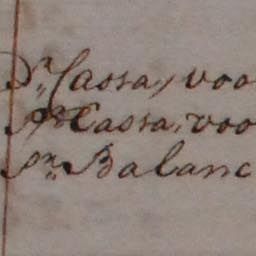 Pr Cassa, voo
Pr Cassa, voo
Pr Balanc